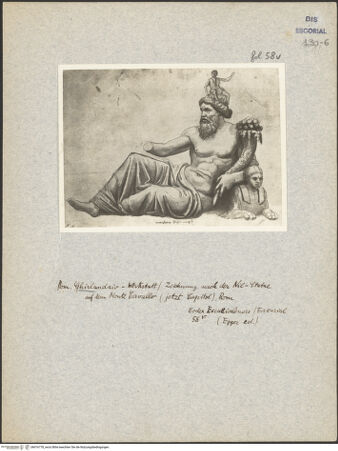 DIS
ESCORIAL
130-6
fol 58v
Dom. Ghirlandaio - Werkstatt / Zeichnung nach der Nil-Statue
auf dem Monte Cavallo (jetzt Capitol), Rom
Codex Escurialensis / Escorial
58v (Egger ed.)